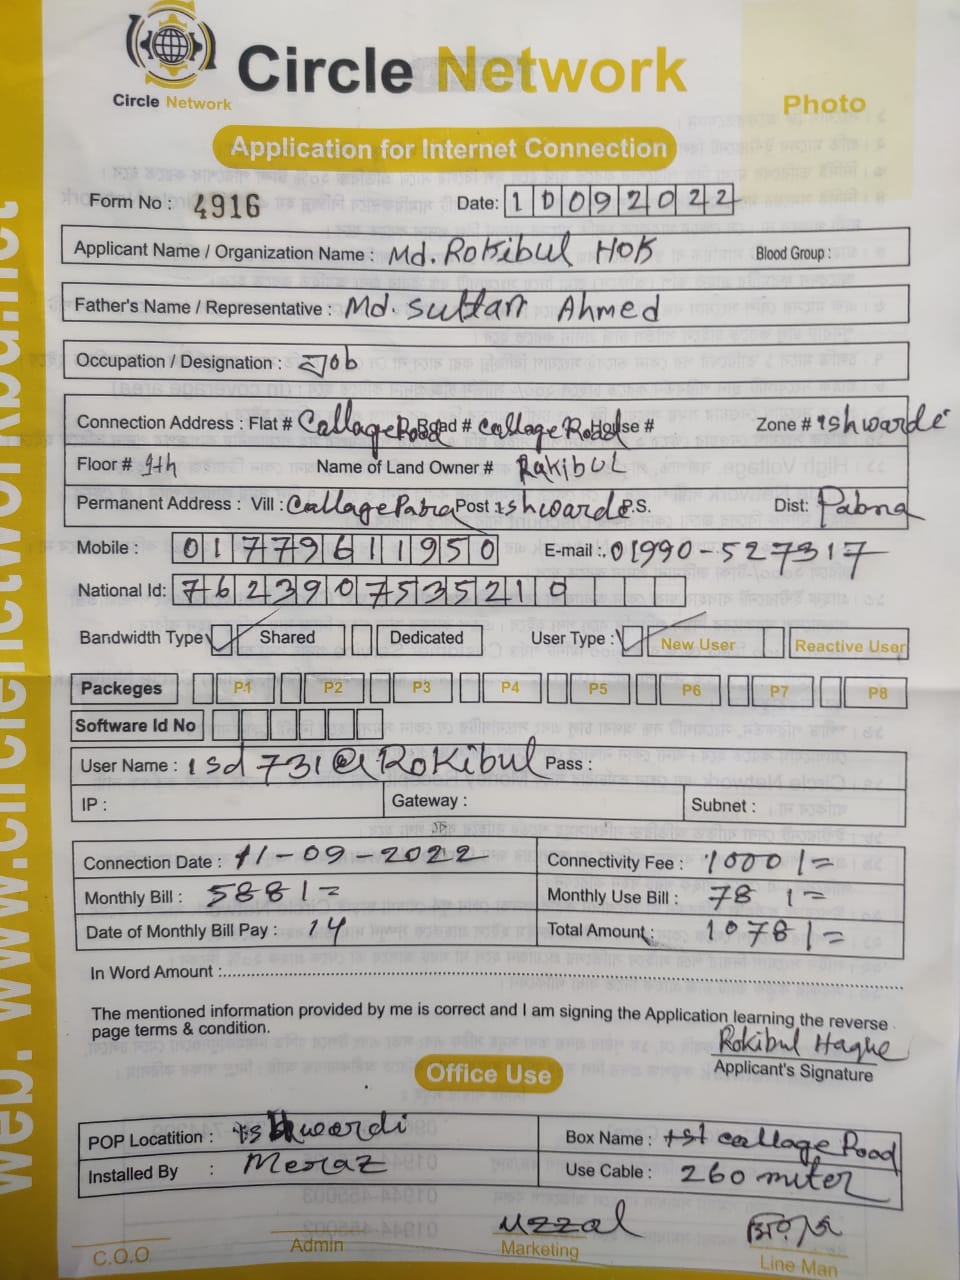 Circle Network
Circle Network
Photo
Application for Internet Connection
Form No : 4916 Date: 10092022
Applicant Name / Organization Name : Md. Rokibul HOK Blood Group :
Father's Name / Representative : Md. Sultan Ahmed
Occupation / Designation : Job
Connection Address : Flat # Callage Road Road # Callage Ro House # Zone # Ishwardi
Floor # 1th Name of Land Owner # Rakibul
Permanent Address : Vill : Callage Para Post : Ishwardi P.S. Dist: Pabna
Mobile : 01779611950 E-mail : 01990-527317
National Id: 7623907535210
Bandwidth Type Shared Dedicated User Type : New User Reactive User
Packeges P1 P2 P3 P4 P5 P6 P7 P8
Software Id No
User Name : isd731@Rokibul Pass :
IP : Gateway : Subnet :
Connection Date : 11-09-2022 Connectivity Fee : 1000/=
Monthly Bill : 588/= Monthly Use Bill : 78/=
Date of Monthly Bill Pay : 14 Total Amount : 1078/=
In Word Amount :
The mentioned information provided by me is correct and I am signing the Application learning the reverse
page terms & condition.
Rokibul Haque
Applicant's Signature
Office Use
POP Locatition : Ishwardi Box Name : 1st callage Road
Installed By : Meraz Use Cable : 260 miter
Uzzal
C.O.O Admin Marketing Line Man
web. www.circlenetworkbd.net